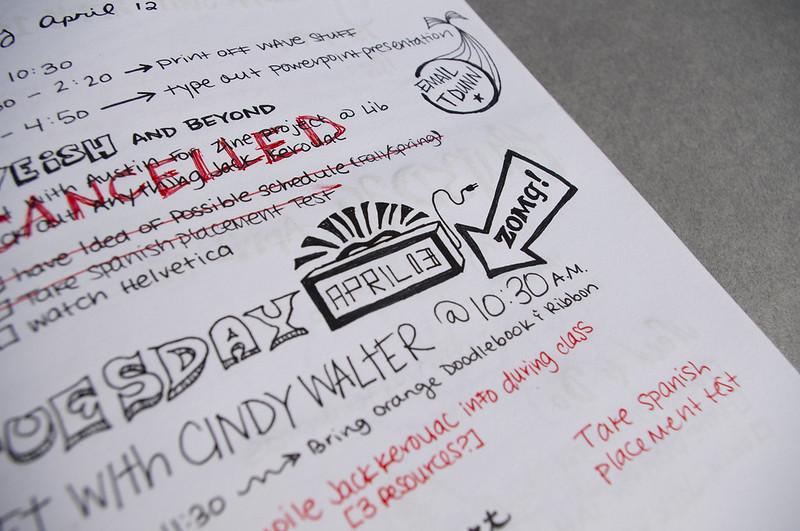 April 12
10:30
- 2:20 → print off WAVE STUFF
- 4:50 → type out Powerpoint presentation
EMAIL T DUNN
VEISH AND BEYOND
with Austin for zine project @ Lib
Anything Jack Kerouac
CANCELLED
have Idea of Possible schedule (Fall/Spring)
Take Spanish placement Test
Watch Helvetica
ZOMG!
APRIL 13
TUESDAY
with CINDY WALTER @ 10:30 A.M.
Bring orange Doodlebook & Ribbon
11:30
Jack Kerouac info during class
[3 resources?]
Take Spanish
placement test